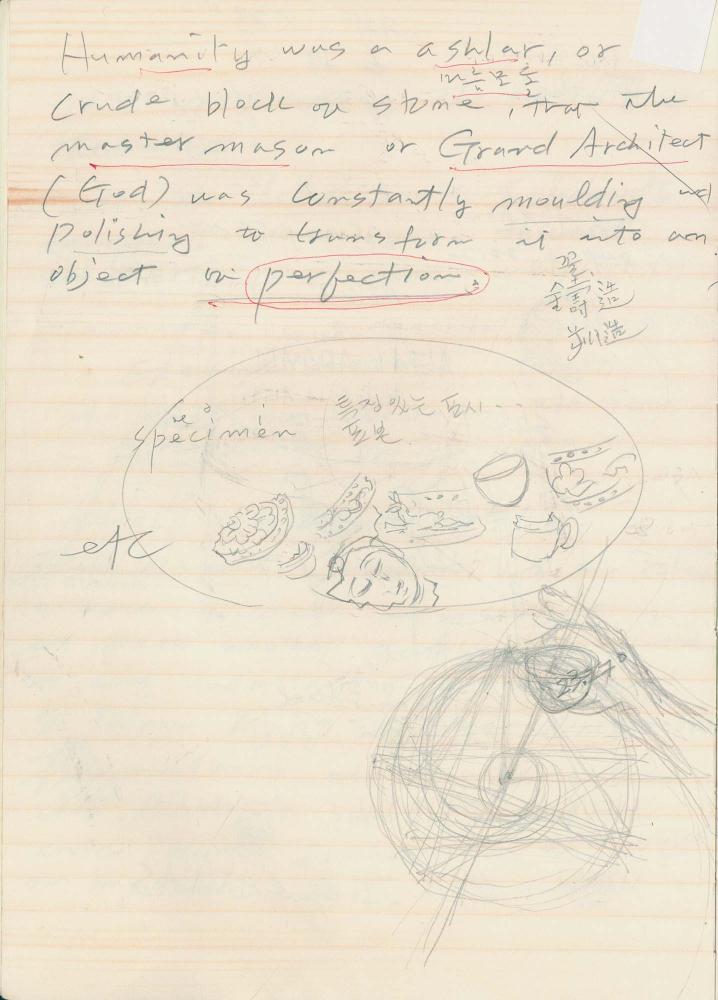 Humanity was a ashlar, or
마름모돌
Crude block on stone, that the
master mason or Grand Architect
(God) was constantly moulding and
Polishing to transform it into an
object on perfection.
꼴
鑄造
specimen
특정있는 도시...
표본
etc